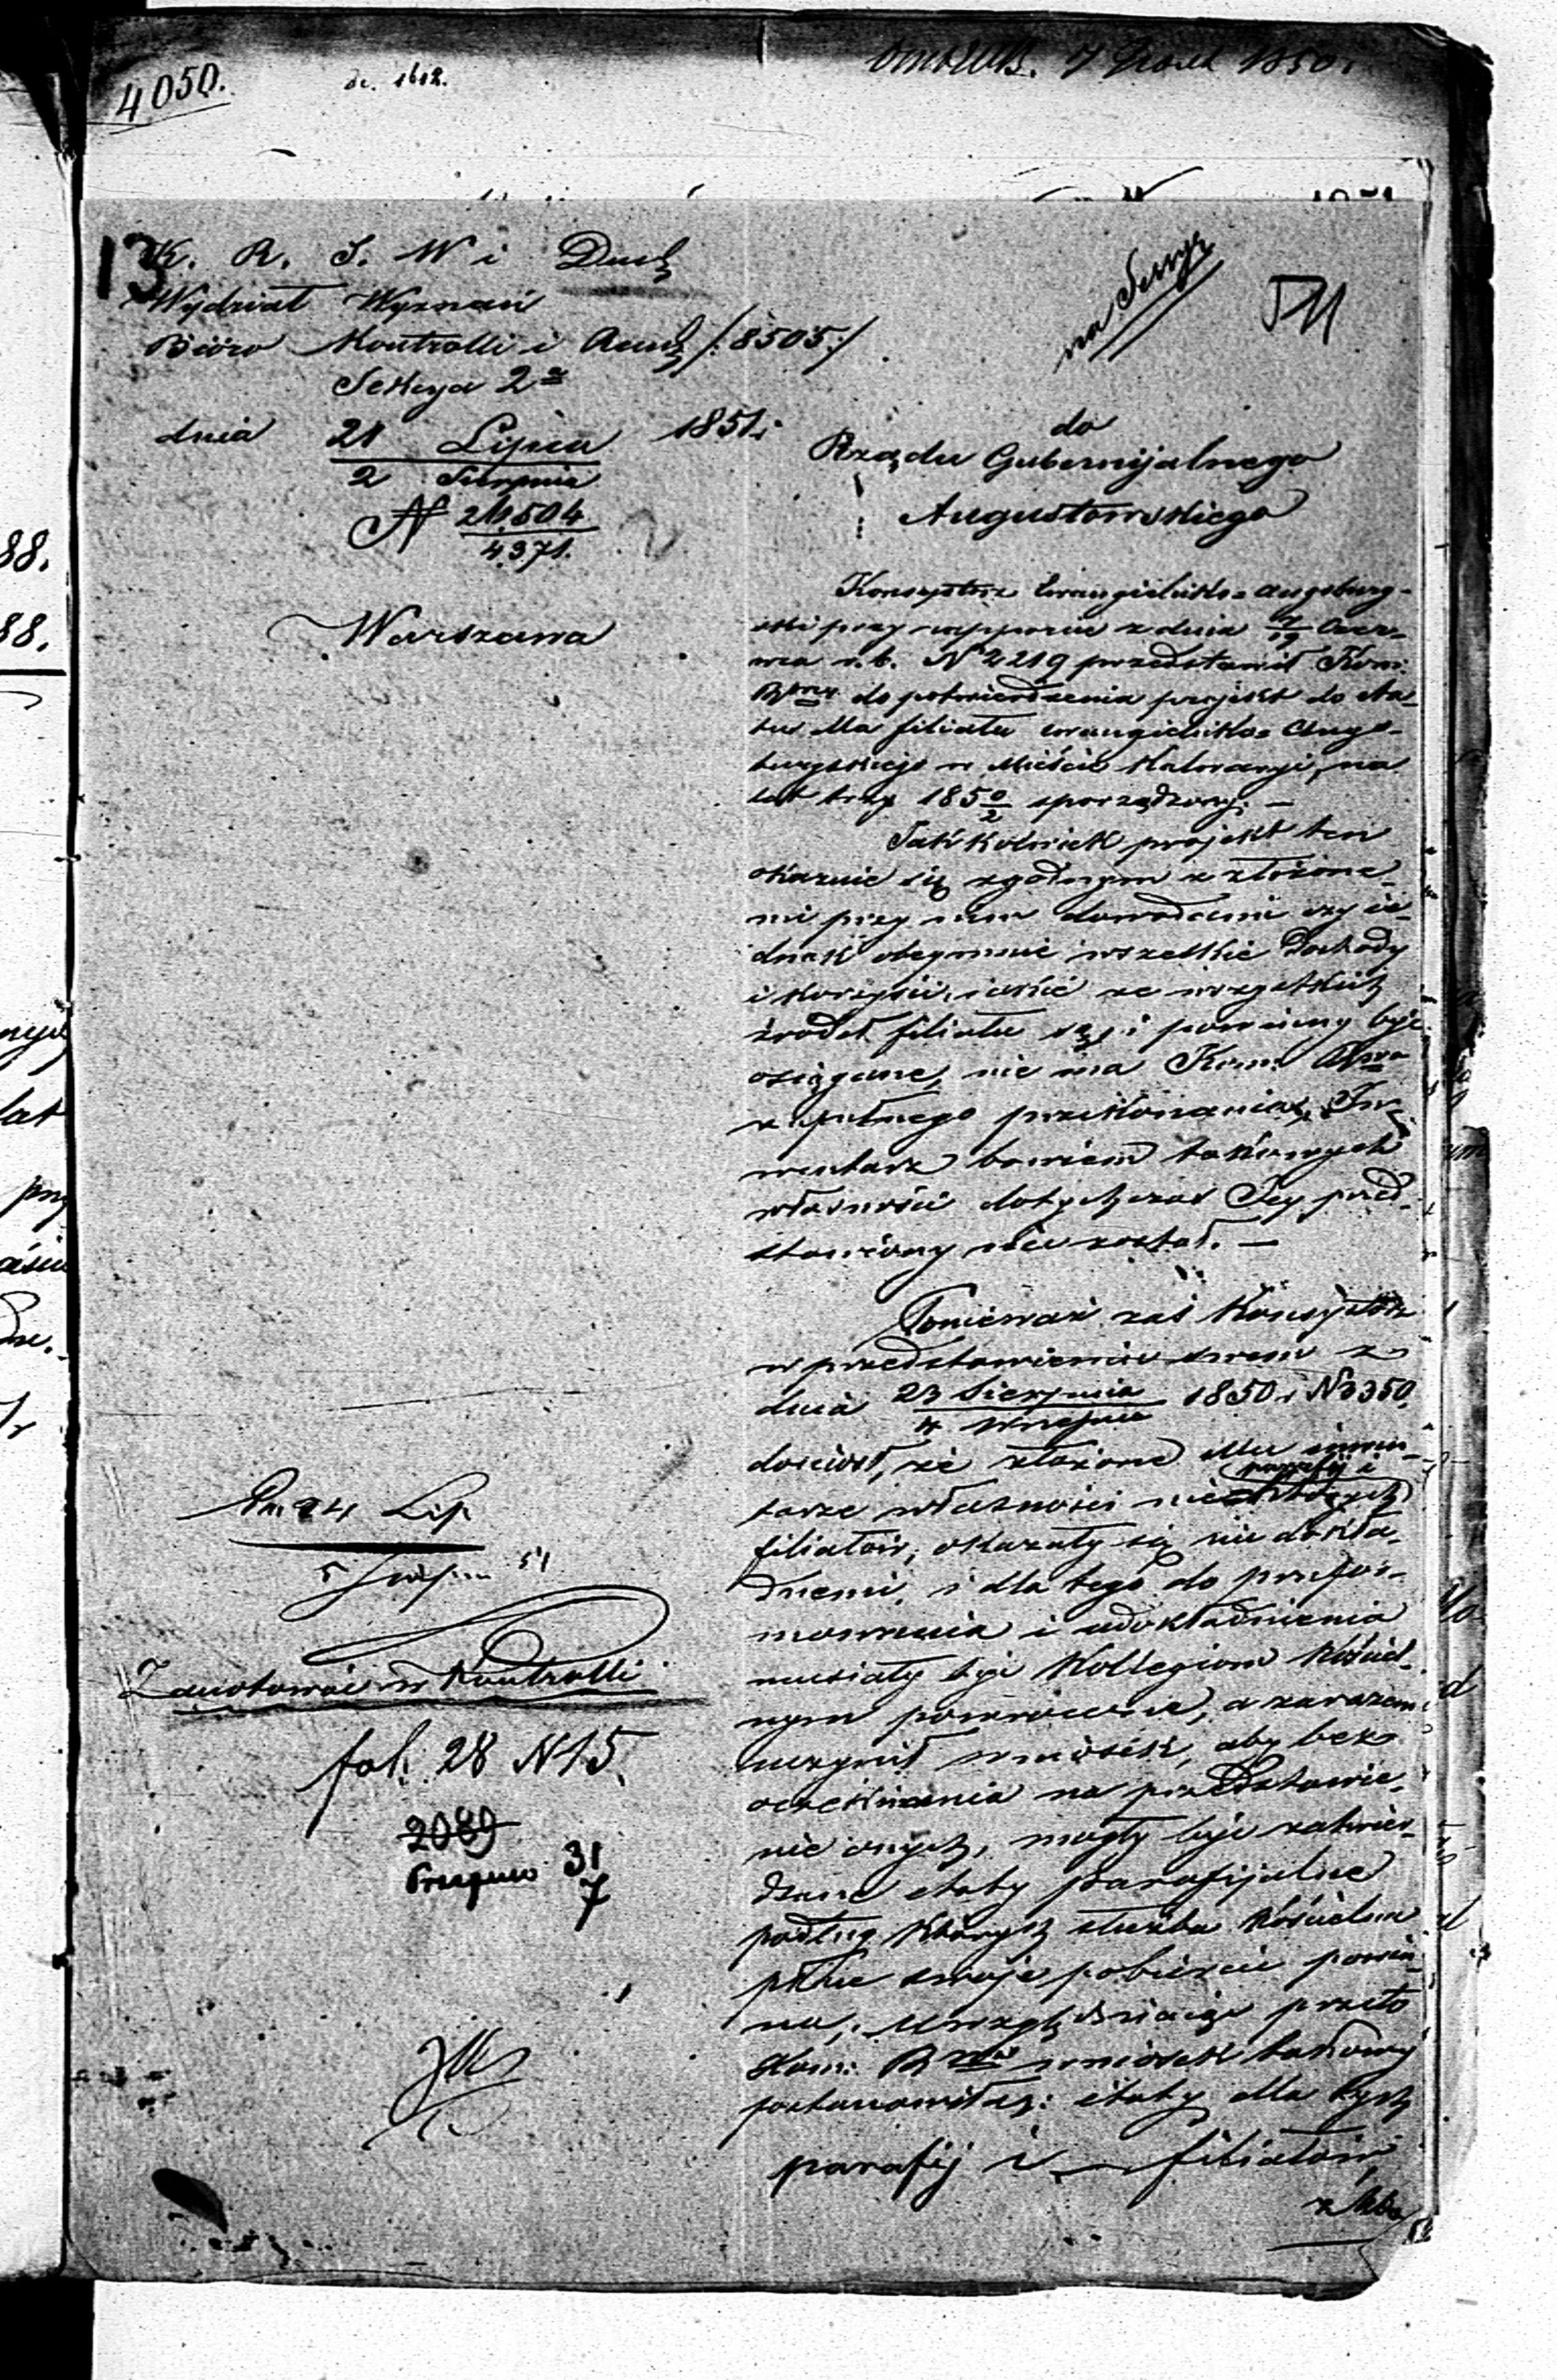 4050.
13
K. R. S. W i Duch
Wydział Wyznań
Biuro Kontrolli i Rach /:8505:/
Sekcya 2ª
dnia 21 Lipca 1851 r.
2 Sierpnia
N 21,504
4371.
Warszawa
do
Rządu Gubernijalnego
Augustowskiego
Konsystorz Ewangielicko-Augsburg-
ski przy rapporcie z dnia 7/19 Czer-
wca r.b. N 2219 przedstawił Kom:
Rzwej do potwierdzenia projekt do eta-
tu dla filiału ewangielicko-Augs-
burgskiego w Mieście Kalwaryi, na
lat trzy 1850/2 sporządzony. —
Jakkolwiek projekt ten
okazuie się zgodnym z złożone-
mi przy nim dowodami czy ie-
dnak obeymuie wszelkie Dochody
i korzyści, iakie ze wszystkich
źrodeł filiału są i powinny być
osiągane, nie ma Kom: Rzwa
zupełnego przekonania, In-
wentarz bowiem takowych
własności dotychczas Jey przed-
stawiony nie został. —
Ponieważ zaś Konsystorz
w przedstawieniu swem z
dnia 23 Sierpnia 1850 r N 3350,
4 Września
doniosł, że złożone Mu inwen-
tarze własności
parafij i
filiałów, okazały się nie dokła-
dnemi, i dla tego do przefor-
mowania i udokładnienia
musiały być Kollegiom Kościel-
nym powrócone, a zarazem
uczynił wniosek, aby bez
oczekiwania na przedstawie-
nie onych, mogły być zatwier-
dzone etaty parafijalne
podług których służba Kościelna
płace swoje pobierać powin-
na, Uwzględniaiąc przeto
Kom: Rzwa wniosek takowy
postanowiła: etaty dla tych
parafij i filiałów
na Sessyę
24 Lip
5 51
Zanotować w Kontrolli
fol: 28 N 15.
2089
31
7